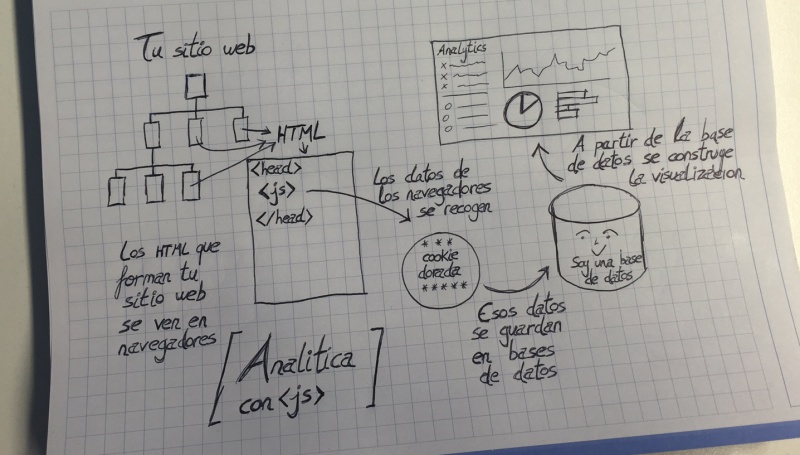 Tu sitio web
HTML
<head>
<js>
</head>
Los HTML que
forman tu
sitio web
se ven en
navegadores
Los datos de
los navegadores
se recogen
* * *
cookie
dorada
* * * * *
Esos datos
se guardan
en bases
de datos
Soy una base
de datos
A partir de la base
de datos se construye
la visualización
Analytics
[Analitica
con <js>]